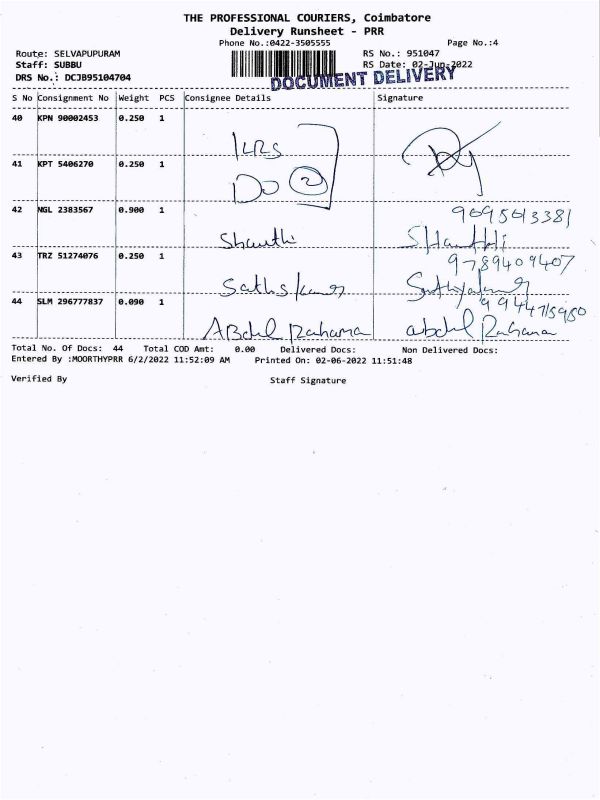 THE PROFESSIONAL COURIERS, Coimbatore
Delivery Runsheet - PRR
Phone No.:0422-3505555 Page No.:4
Route: SELVAPUPURAM RS No.: 951047
Staff: SUBBU RS Date: 02-Jun-2022
DRS No.: DCJB95104704 DOCUMENT DELIVERY
S No Consignment No Weight PCS Consignee Details Signature
40 KPN 90002453 0.250 1
KRS
41 KPT 5406270 0.250 1
Do 2
42 NGL 2383567 0.900 1 9095613381
Shanthi Shanthi
43 TRZ 51274076 0.250 1 9789409407
Sathiskumar
44 SLM 296777837 0.090 1 9944715980
Abdul Rahama abdul Rahama
Total No. Of Docs: 44 Total COD Amt: 0.00 Delivered Docs: Non Delivered Docs:
Entered By :MOORTHYPRR 6/2/2022 11:52:09 AM Printed On: 02-06-2022 11:51:48
Verified By Staff Signature